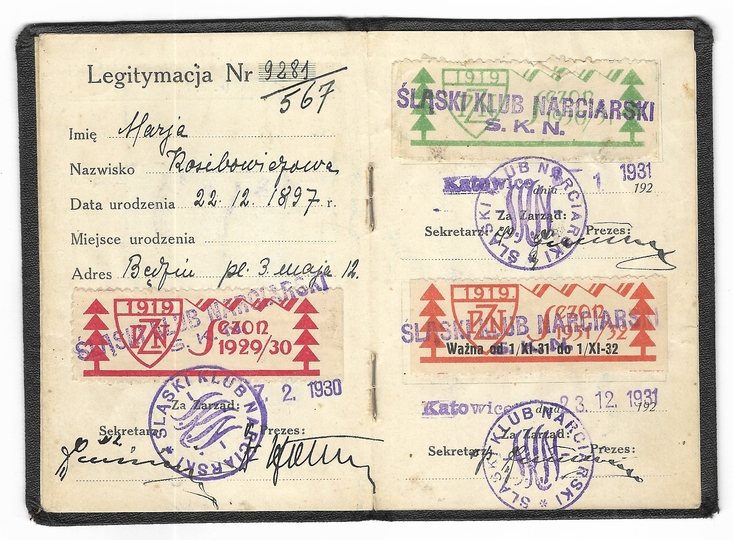 Legitymacja Nr 9281
567
Imię Marja
Nazwisko Kosibowiczowa
Data urodzenia 22 12. 1897 r.
Miejsce urodzenia
Adres Będzin pl. 3. maja 12.
1919
PZN
Sezon
1929/30
ŚLĄSKI KLUB NARCIARSKI
S. K. N.
7. 2. 1930
Za Zarząd:
Sekretarz: Prezes:
ŚLĄSKI KLUB NARCIARSKI
1919
PZN
Sezon
1930/31
ŚLĄSKI KLUB NARCIARSKI
S. K. N.
Katowice dnia 1 1931
192
Za Zarząd:
Sekretarz: Prezes:
ŚLĄSKI KLUB NARCIARSKI
1919.
PZN
Sezon
1931/32
ŚLĄSKI KLUB NARCIARSKI
S. K. N.
Ważna od 1/XI-31 do 1/XI-32
Katowice dnia 23. 12. 1931
192
Za Zarząd:
Sekretarz Prezes:
ŚLĄSKI KLUB NARCIARSKI